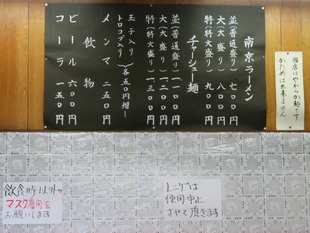 南京ラーメン
並(普通盛り) 七〇〇
大(大盛り) 八〇〇
特(特大盛り) 九〇〇
チャーシュー麺
並(普通盛り) 一一〇〇
大(大盛り) 一二〇〇
特(特大盛り) 一三〇〇
玉子入り
トロコブ入り (各五〇円増し)
メンマ 二五〇
飲物
ビール 六〇〇円
コーラ 一五〇円
当店はやわらか麺です
かためは出来ません
飲食時以外の
マスク着用を
お願いします
使用中止
させて頂きます